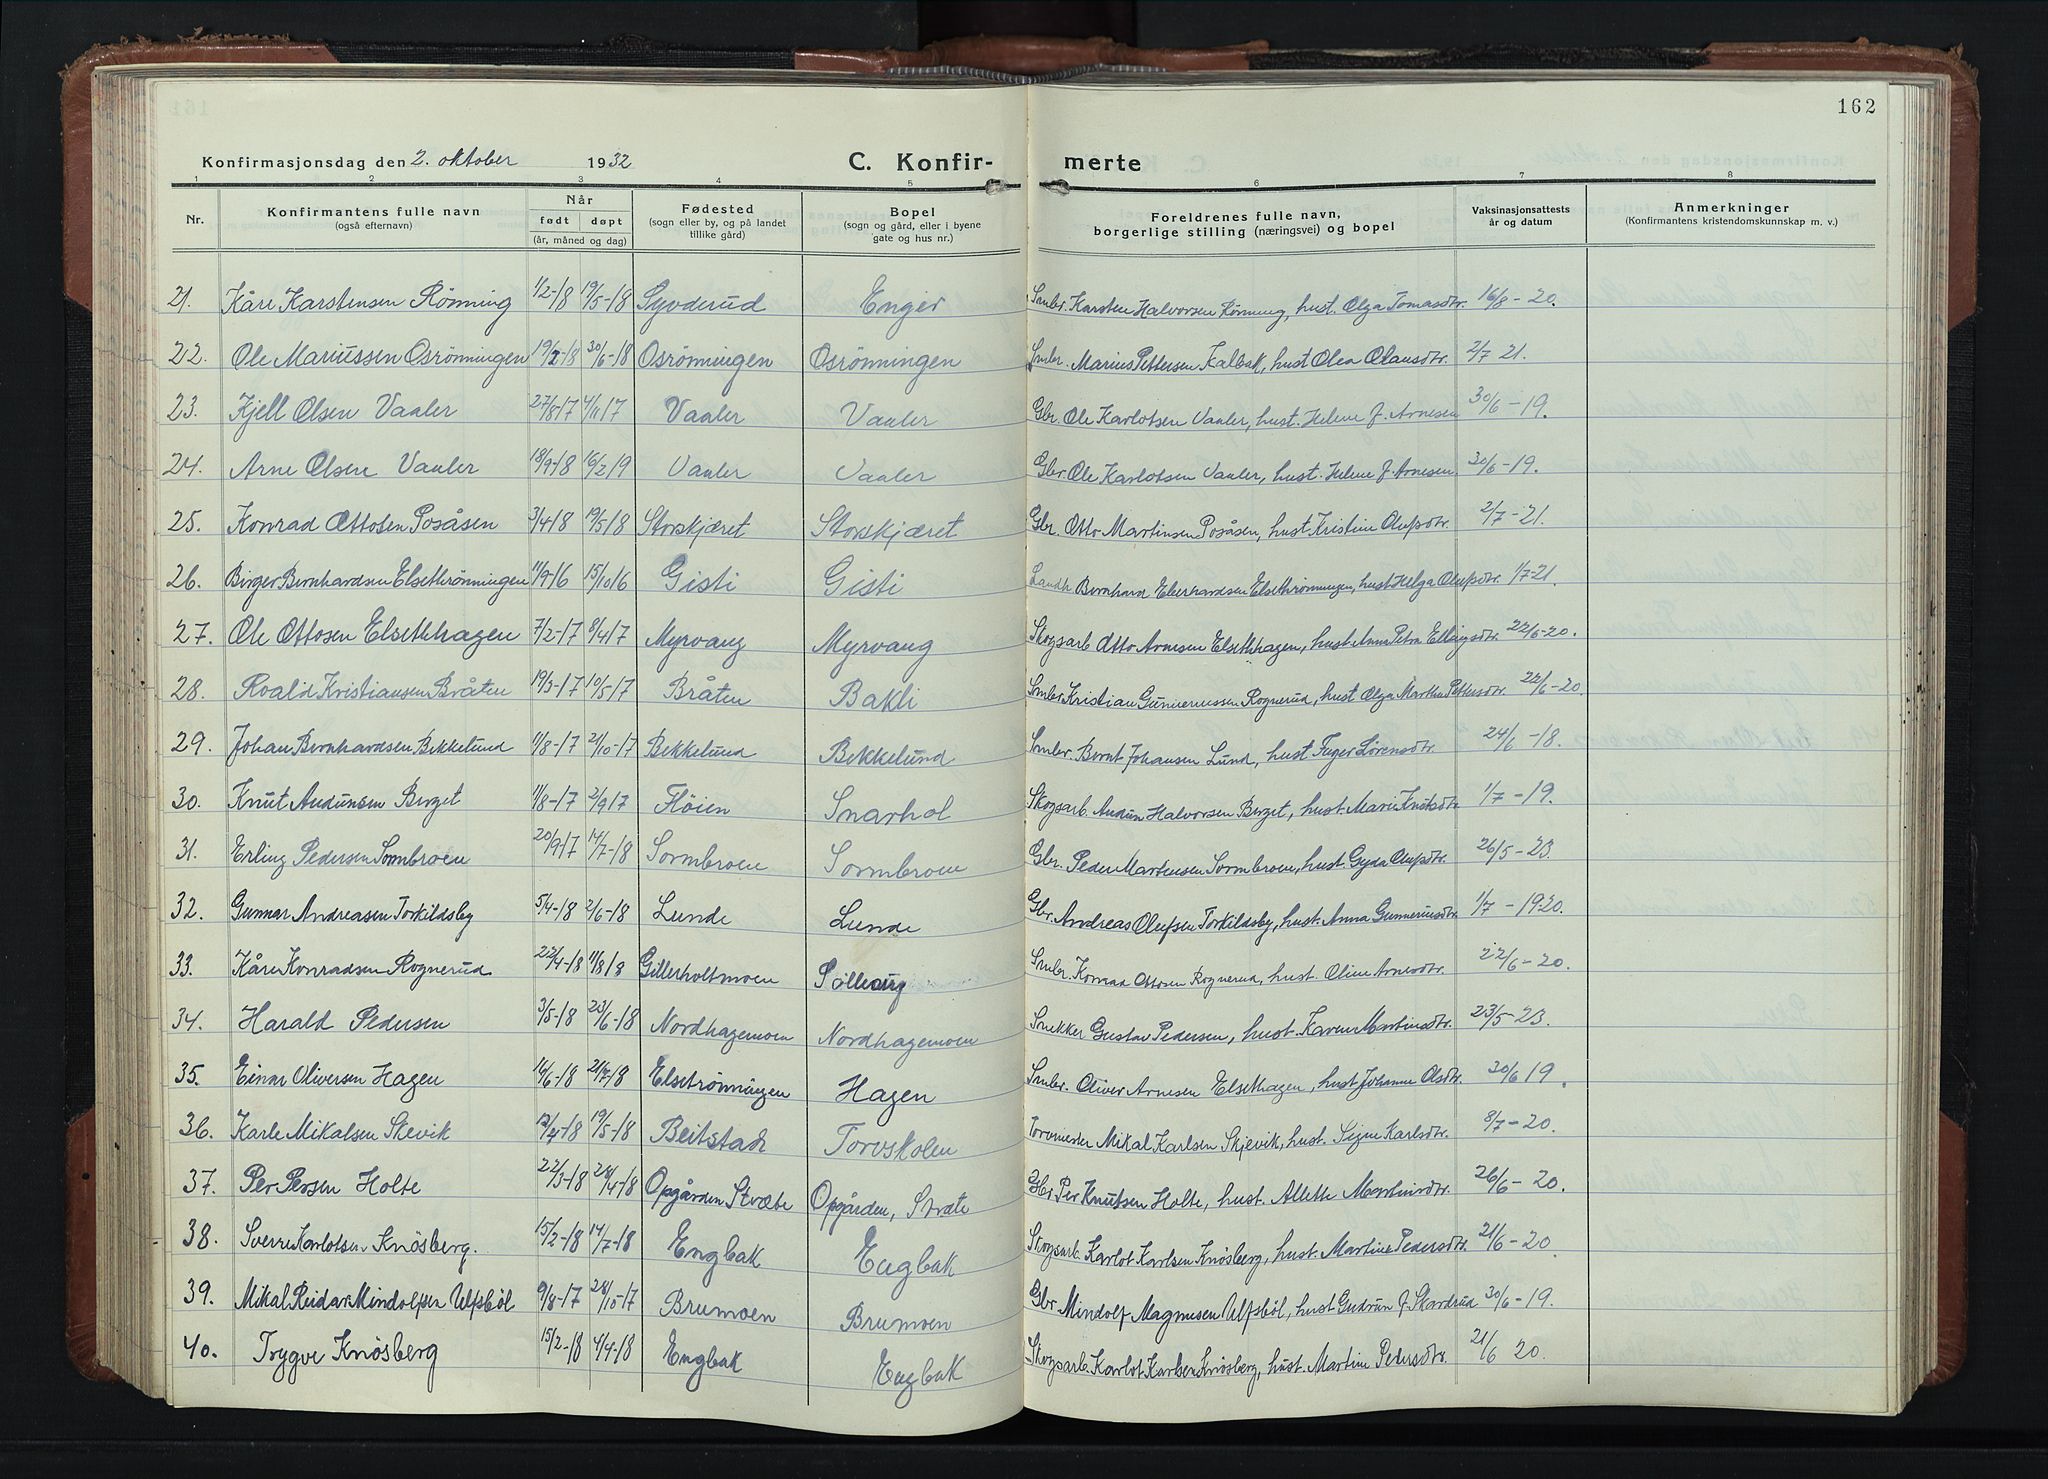 162
Konfirmasjonsdag den 2. oktober 1932 C. Konfir- merte
1 2 3 4 5 6 7 8
Nr. Konfirmantens fulle navn (også efternavn) Når født døpt (år, måned og dag) Fødested (sogn eller by, og på landet tillike gård) Bopel (sogn og gård, eller i byene gate og hus nr.) Foreldrenes fulle navn, borgerlige stilling (næringsvei) og bopel Vaksinasjonsattests år og datum Anmerkninger (Konfirmantens kristendomskunnskap m. v.)
21. Kåre Karstensen Rönning 1/2-18 19/5-18 Syverud Enger Smbr. Karsten Halvorsen Rönning, hust. Olga Tomasdtr. 16/8-20.
22. Ole Mariussen Osrönningen 19/2-18 30/6-18 Osrönningen Osrönningen Smbr. Marius Pettersen Kalbak, hust Olea Olausdtr. 2/7 21.
23. Kjell Olsen Vaaler 27/8 17 4/11 17 Vaaler Vaaler Gbr. Ole Karlotsen Vaaler, hust. Helene f. Arnesen 30/6-19.
24. Arne Olsen Vaaler 18/9-18 16/2 19 Vaaler Vaaler Gbr. Ole Karlotsen Vaaler, hust. Helene f. Arnesen 30/6-19.
25. Konrad Ottosen Posåsen 3/4 18 19/5 18 Storskjæret Storskjæret Gbr. Otto Martinsen Posåsen, hust Kristine Olufsdtr. 2/7-21.
26. Birger Bernhardsen Elsethrönningen 11/9-16 15/10 16 Gisti Gisti Landh. Bernhard Eberhardsen Elsethrönningen, hust Helga Olufsdtr. 1/7-21.
27. Ole Ottosen Elsethhagen 7/2-17 8/4 17 Myrvang Myrvang Skogsarb. Otto Arnesen Elsethhagen, hust Anna Petra Ellingsdtr. 22/6-20.
28. Roald Kristiansen Bråten 19/3-17 10/5-17 Bråten Bakli Smbr. Kristian Gunnerussen Rognerud, hust Olga Marthe Pettersdtr. 22/6-20.
29. Johan Bernhardsen Bekkelund 11/8-17 21/10-17 Bekkelund Bekkelund Smbr. Bernt Johansen Lund, hust Inger Lorensdtr. 24/6-18.
30. Knut Audunsen Berget 1/8-17 2/9 17 Flöien Snarhol Skogsarb. Audun Halvorsen Berget, hust. Marie Knutsdtr. 1/7-19.
31. Erling Pedersen Sormbroen 20/9 17 14/7-18 Sormbroen Sormbroen Gbr. Peder Martinsen Sormbroen, hust. Gyda Olufsdtr. 26/5-23.
32. Gunnar Andreasen Torkildsby 5/4-18 2/6-18 Lunde Lunde Gbr. Andreas Olufsen Torkildsby, hust. Anna Gunneriusdtr. 1/7-19.20.
33. Kåre Konradsen Rognerud 22/4-18 11/8 18 Gillerholtmoen Solhaug Smbr. Konrad Ottosen Rognerud, hust. Oline Arnesdtr. 22/6-20.
34. Harald Pedersen 3/5-18 23/6-18 Nordhagemoen Nordhagemoen Snekker Gustav Pedersen, hust. Karen Martinsdtr. 23/5-23.
35. Einar Oliversen Hagen 16/6-18 21/7-18 Elsetrönningen Hagen Smbr. Oliver Arnesen Elsethagen, hust Johanne Olsdtr. 30/6 19.
36. Karle Mikalsen Skevik 12/4-18 19/5-18 Beitstad Torvskolen Torvmester Mikal Karlsen Skjevik, hust. Signe Karlsdtr. 8/7-20.
37. Per Persen Holte 22/3-18 28/4-18 Opgården Stræte Opgården, Stræte Gbr Per Knutsen Holte, hust. Allette Martinsdtr. 26/6-20.
38. Sverre Karlotsen Knösberg. 15/2-18 14/7-18 Engbak Engbak Skogsarb. Karlot Karlsen Knösberg, hust. Martine Pedersdtr. 21/6-20.
39. Mikal Reidar Mindolfsen Ulfsböl 9/8-17 28/10-17 Brumoen Brumoen Gbr Mindolf Magnusen Ulfsböl, hust Gudrun f. Skardrud 30/6-19.
40. Trygve Knösberg 15/2-18 4/4-18 Engbak Engbak Skogsarb. Karlot Karlsen Knösberg, hust. Martine Pedersdtr. 21/6 20.